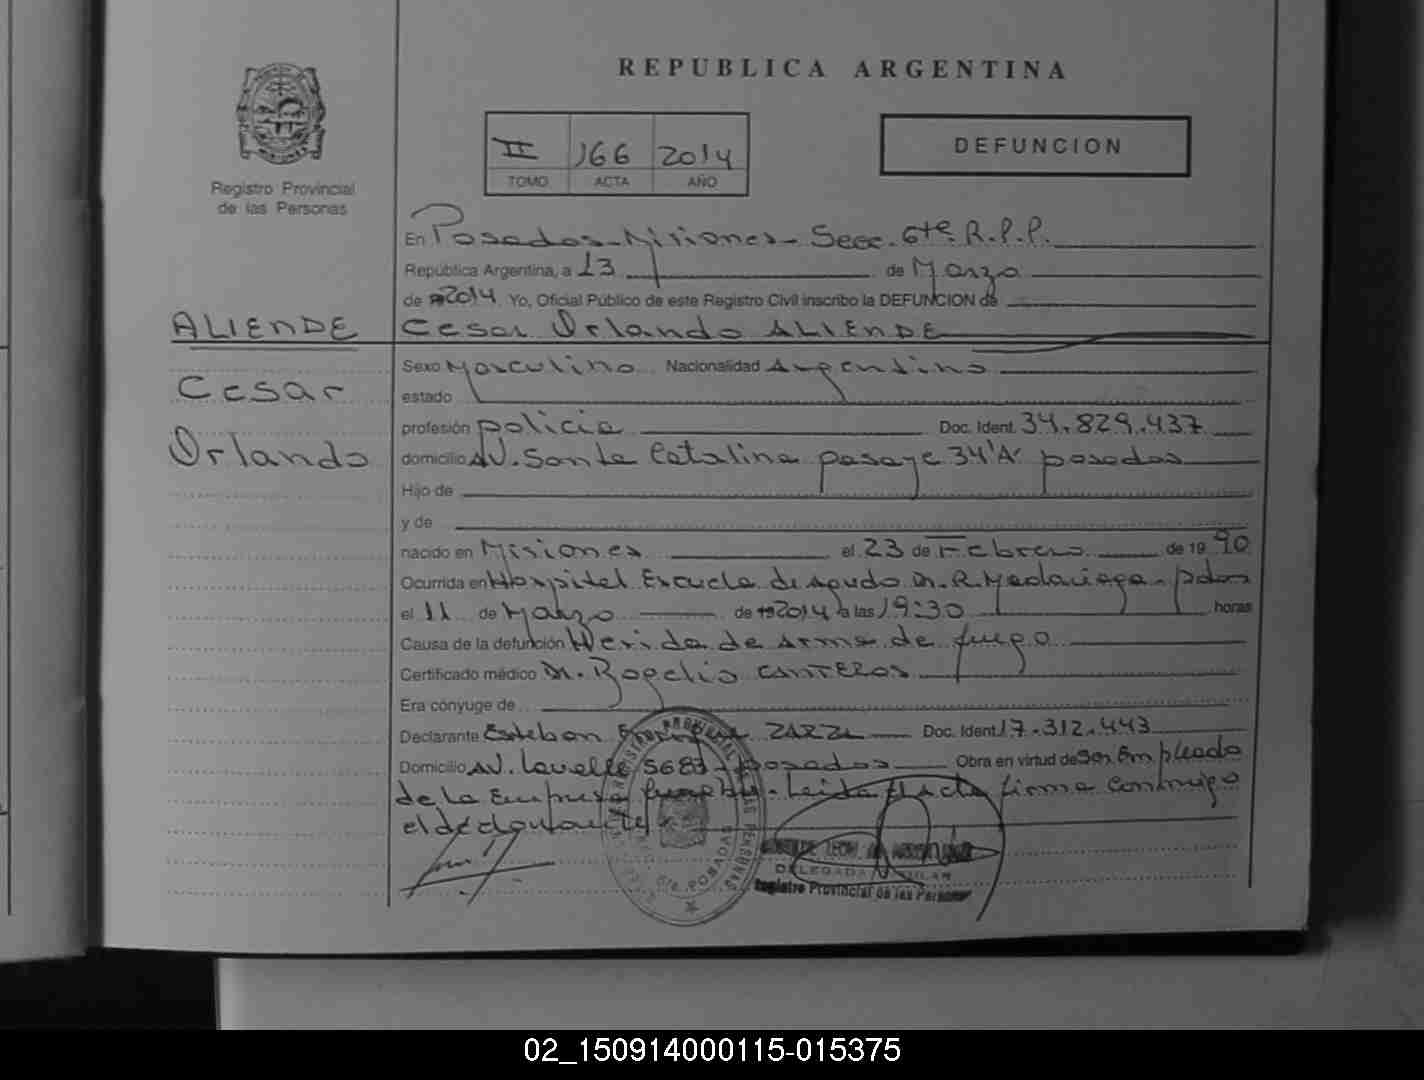 REPUBLICA ARGENTINA
II 166 2014
TOMO ACTA AÑO
DEFUNCION
Registro Provincial
de las Personas
ALIENDE
Cesar
Orlando
En Posadas - Misiones - Secc. 6te. R.P.P.
República Argentina, a 13 de Marzo
de 2014 Yo, Oficial Público de este Registro Civil inscribo la DEFUNCION de
Cesar Orlando ALIENDE
Sexo Masculino Nacionalidad Argentino
estado
profesión policia Doc. Ident. 34.829.437
domicilio AV. Santa Catalina pasaje 34 'A' posadas
Hijo de
y de
nacido en Misiones el 23 de Febrero de 19 90
Ocurrida en Hospital Escuela de agudo Dr. R. Madariaga - pdas
el 11 de Marzo de 2014 a las 19:30 horas
Causa de la defunción Herida de arma de fuego
Certificado médico Dr. Rogelio CANTEROS
Era cónyuge de
Declarante Esteban Enrique Doc. Ident. 17.312.443
Domicilio AV. Lavalle 5683 - posadas Obra en virtud de ser Empleado
de la Empresa funebre. Leida el acta firma conmigo
el declarante
DELEGADA TITULAR
Registro Provincial de las Personas
02_150914000115-015375